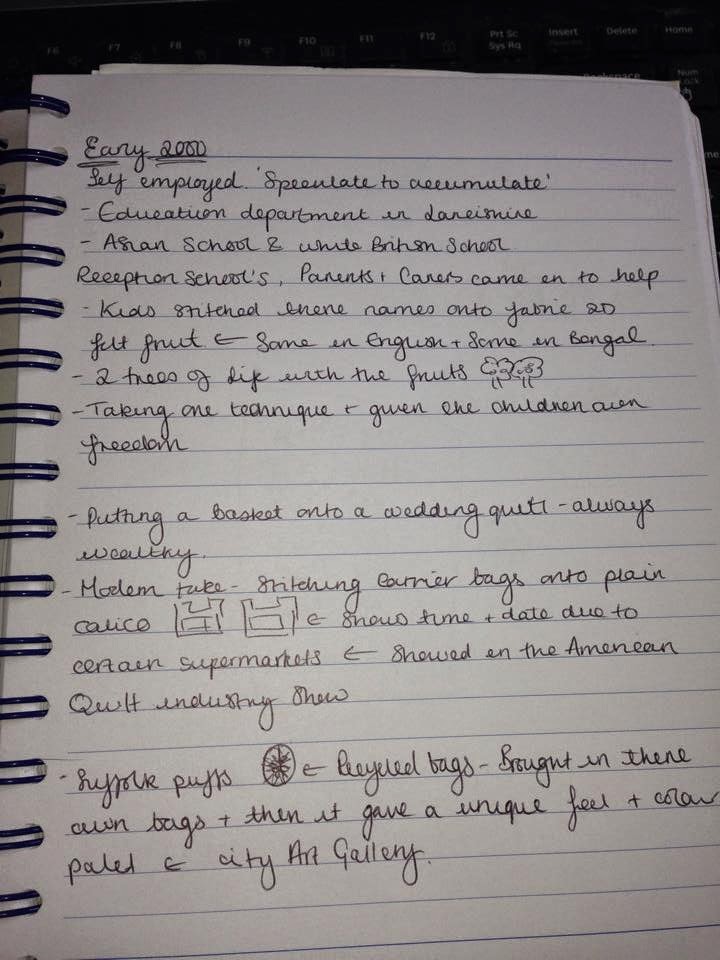 F6 F7 F8 F9 F10 F11 F12 Prt Sc Insert Delete Home
Sys Rq
Backspace Num
Lock
Early 2000
Self employed. 'Speculate to accumulate'
- Education department in Lancishire
- Asian School & white British School
Reception School's, Parents + Carers came in to help
- Kids stitched there names onto fabric 2D
felt fruit ← Some in English + Some in Bengal.
- 2 trees of life with the fruits
- Taking one technique + given the children own
freedom
- Putting a basket onto a wedding quilt - always
wealthy.
- Modern take - stitching carrier bags onto plain
calico ← shows time + date due to
certain supermarkets ← Showed in the American
Quilt industry Show
- Suffolk puffs ← Recycled bags - Brought in there
own bags + then it gave a unique feel + colour
palet ← city Art Gallery.